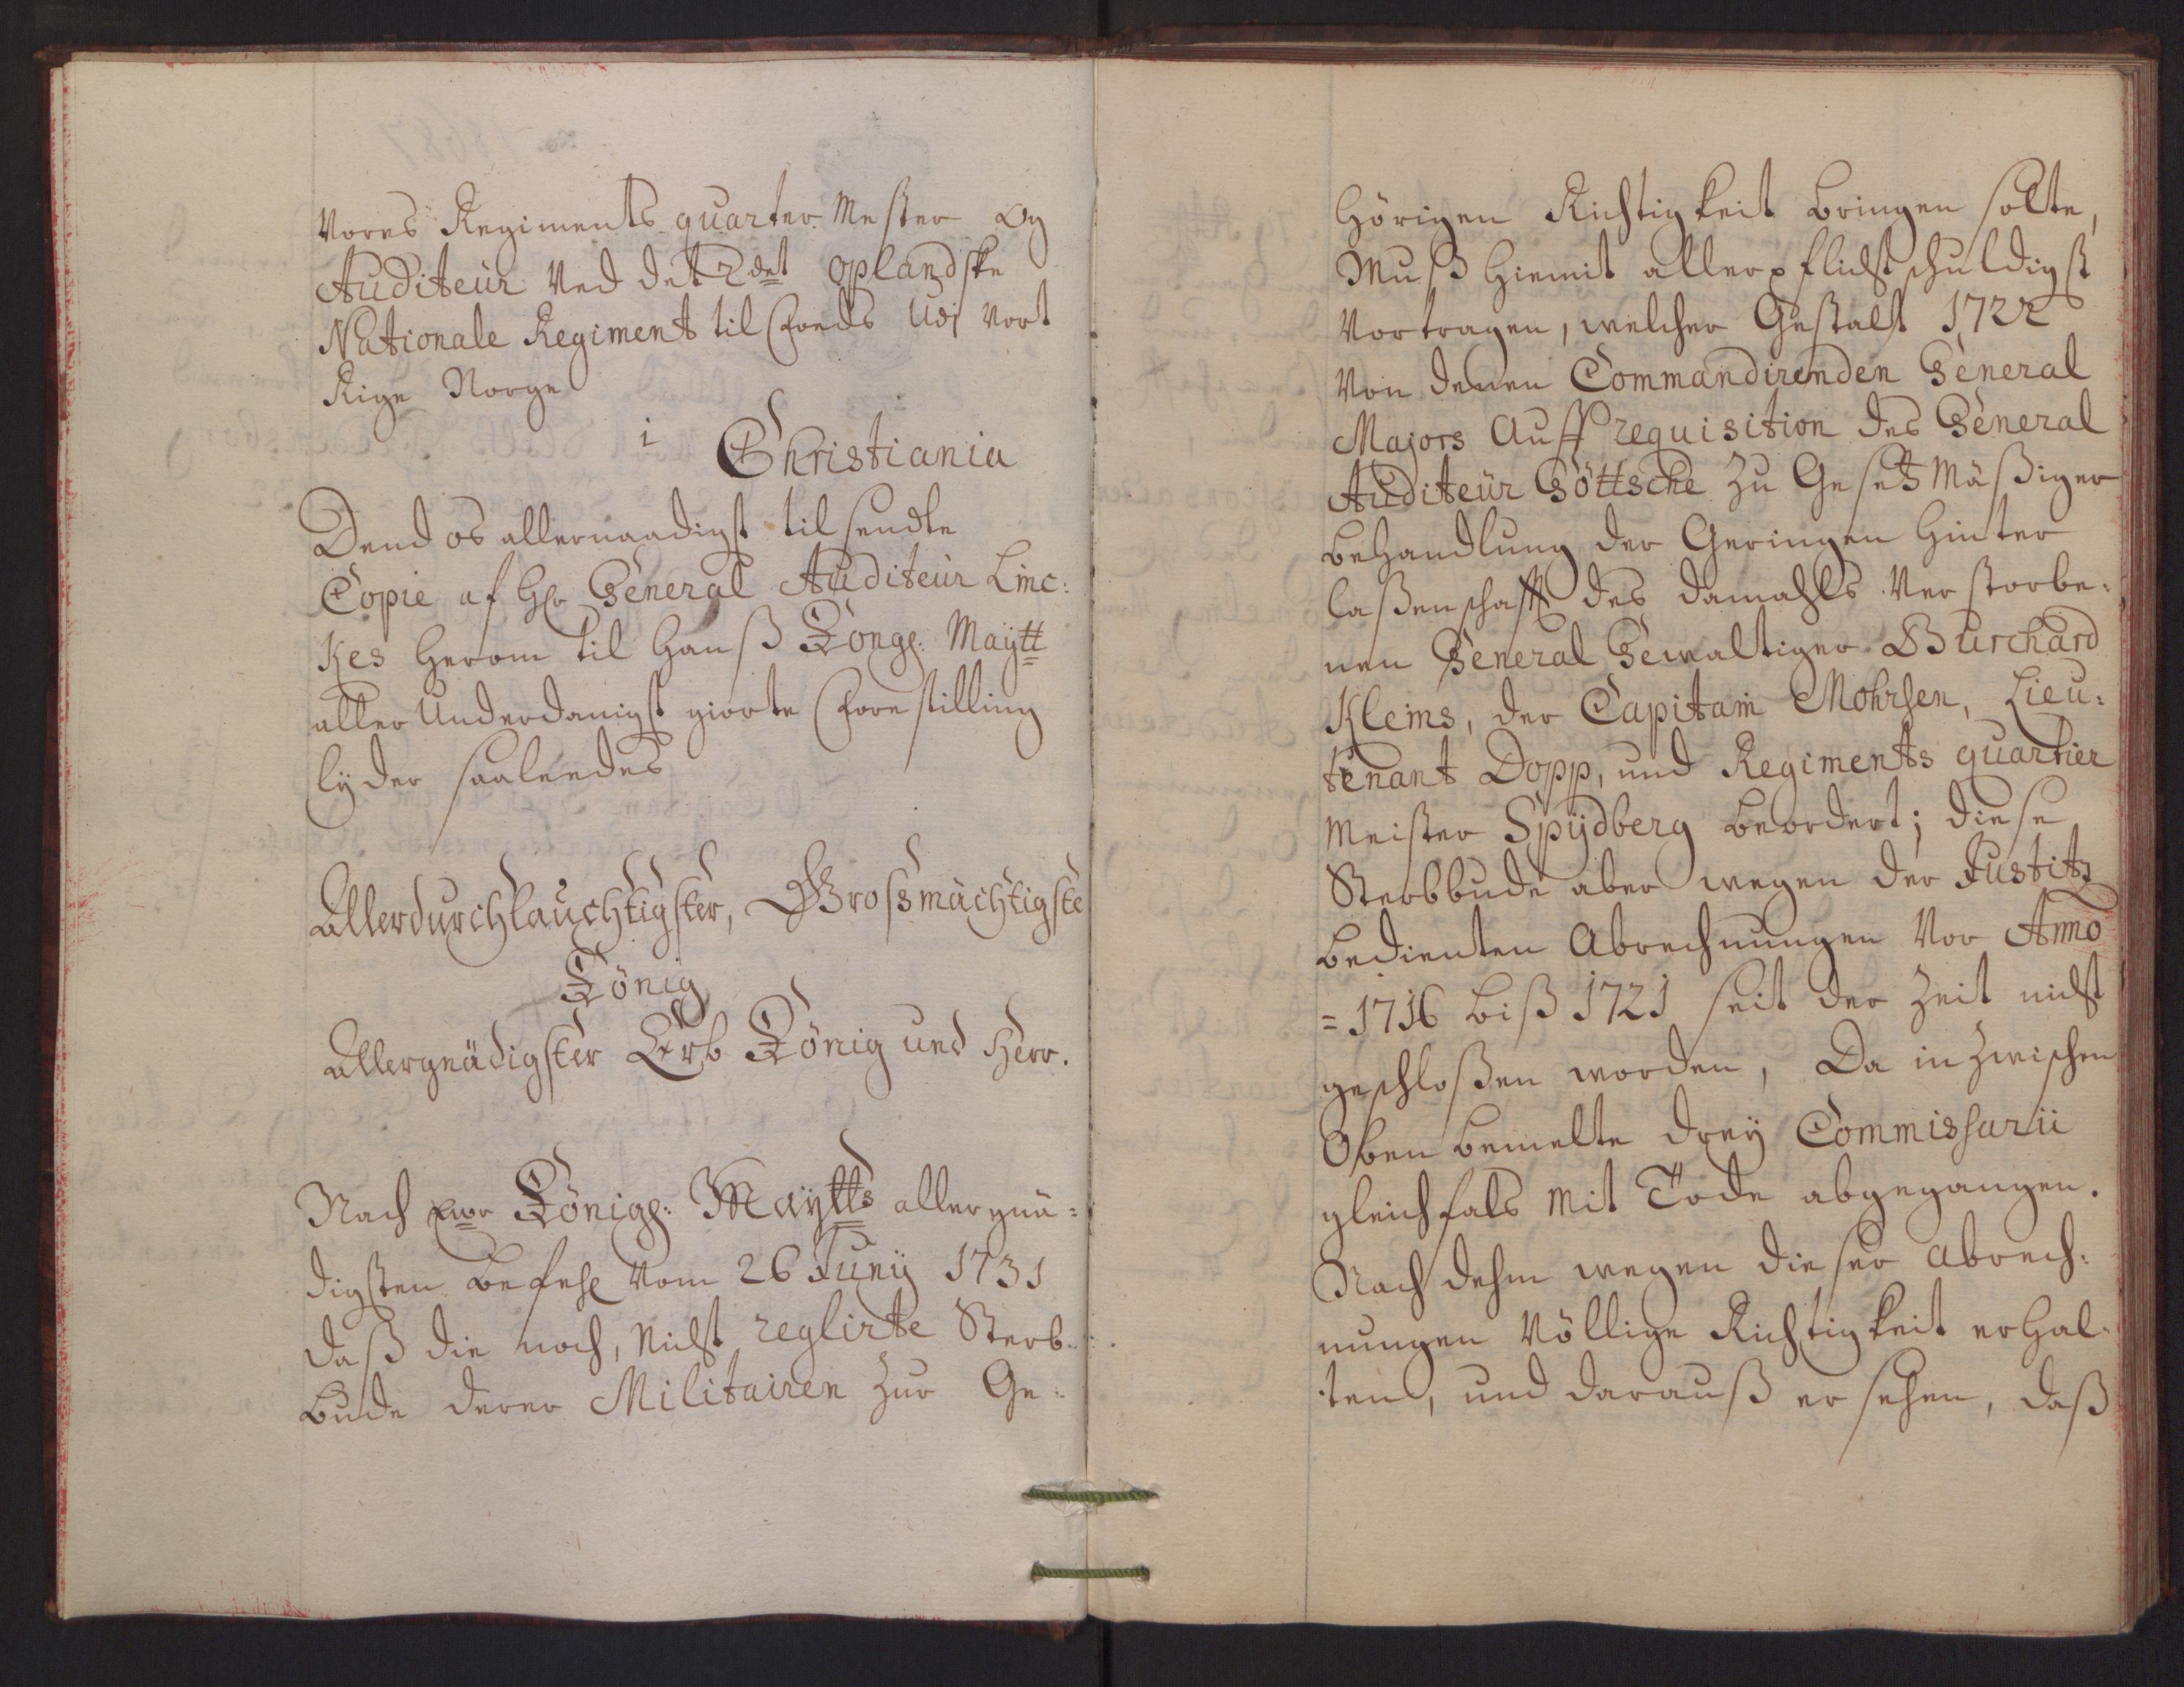 Vores Regiments quarter Mester og
Auditeur Ved det 2det oplandske
Nationale Regiment til Foeds Udj vort
Rige Norge
i Christiania
Dend os allernaadigst tilsendte
Copie af Hr General Auditeur Linc:
kes herom til Hanß Kongl: Maytt
aller Underdanigst giorte Forestilling
lyder saaleedes
Allerdurchlauchtigster, Großmächtigste
König
Allergnädigster Erb König und Herr.
Nach Ewr Königl: Maytts allergnä=
digsten Befehl vom 26 Junij 1731
daß die noch, nicht reglirte Sterb=
bude derer Militairen zur Ge=
hörigen Richtigkeit bringen solte,
Muß hiemit allerpflichtschuldigst
vortragen, welcher Gestalt 1722
von denen Commandirenden General
Majors Auff requisition des General
Auditeur Göttsche zu Gesetz mäßiger
behandlung der Geringen hinter
laßenschafft des damahls verstorbe=
nen General Gewaltiger Burchard
Klems, der Capitain Mohrsen, Lieu=
tenant Dopp, und Regiments quartier
Meister Spydberg beordert; diese
Sterbbude aber wegen der Justitz
bedienten Abrechnungen vor Anno
=1716 biß 1721 seit der Zeit nicht
geschloßen worden, Da inzwischen
Oben bemelte drey Commissarii
gleichfals mit Tode abgegangen.
Nach dehm wegen dieser Abrech=
nungen völlige Richtigkeit erhal=
ten, und darauß ersehen, daß